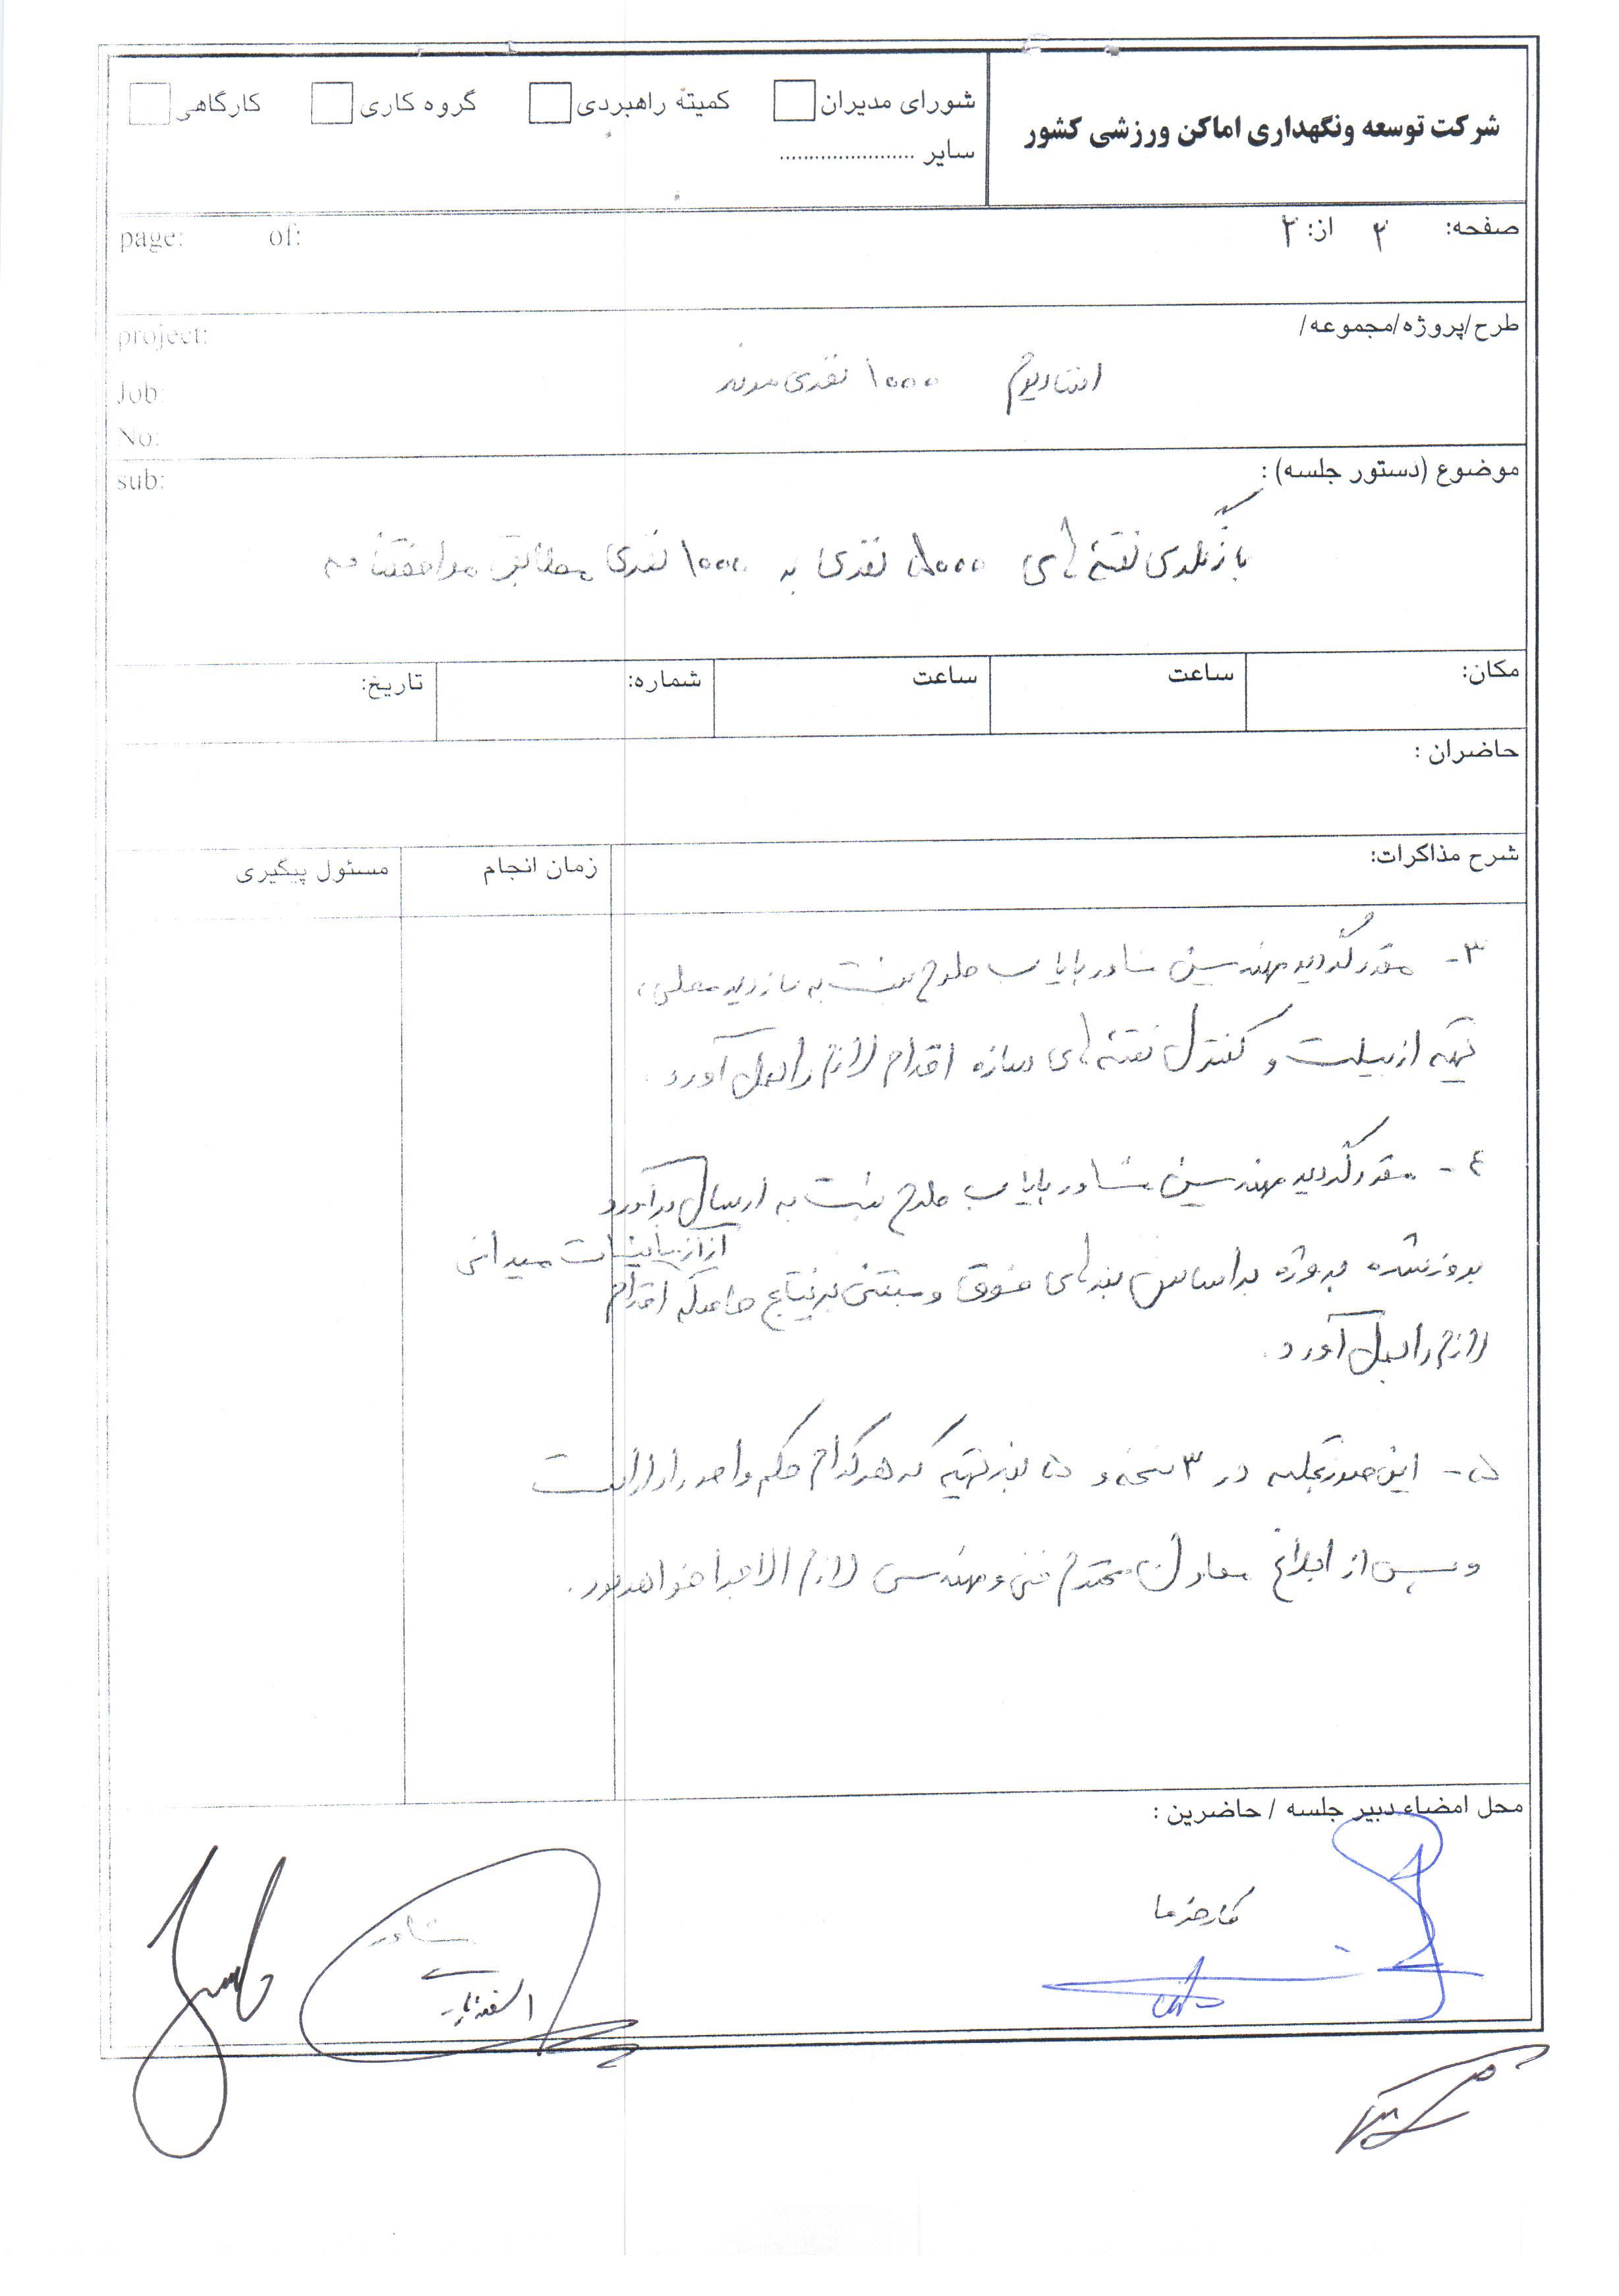 شرکت توسعه ونگهداری اماکن ورزشی کشور
شورای مدیران کمیته راهبردی گروه کاری کارگاهی
سایر .......................
صفحه: ۲ از: ۲
page: of:
طرح/پروژه/مجموعه/
project:
استادیوم ۱۰۰۰ نفری
Job
No:
موضوع (دستور جلسه) :
sub:
بازنگری نقشه های ۵۰۰۰ نفری به ۱۰۰۰ نفری مطابق موافقتنامه
مکان: ساعت ساعت شماره: تاریخ:
حاضران :
شرح مذاکرات: زمان انجام مسئول پیگیری
۳- مقرر گردید مهندسین مشاور پایاب طرح نسبت به بازدید محلی ،
تهیه ازبیلت و کنترل نقشه های سازه اقدام لازم را بعمل آورد .
۴- مقرر گردید مهندسین مشاور پایاب طرح نسبت به ارسال برآورد
بروز شده پروژه براساس بندهای فوق و مبتنی بر نتایج حاصله از ازبیلت میدانی اقدام
لازم را بعمل آورد .
۵- این صورتجلسه در ۳ نسخه و ۵ بند تهیه که هر کدام حکم واحد را دارا است
و پس از ابلاغ معاون محترم فنی و مهندسی لازم الاجرا خواهد بود .
محل امضاء دبیر جلسه / حاضرین :
کارفرما
مشاور